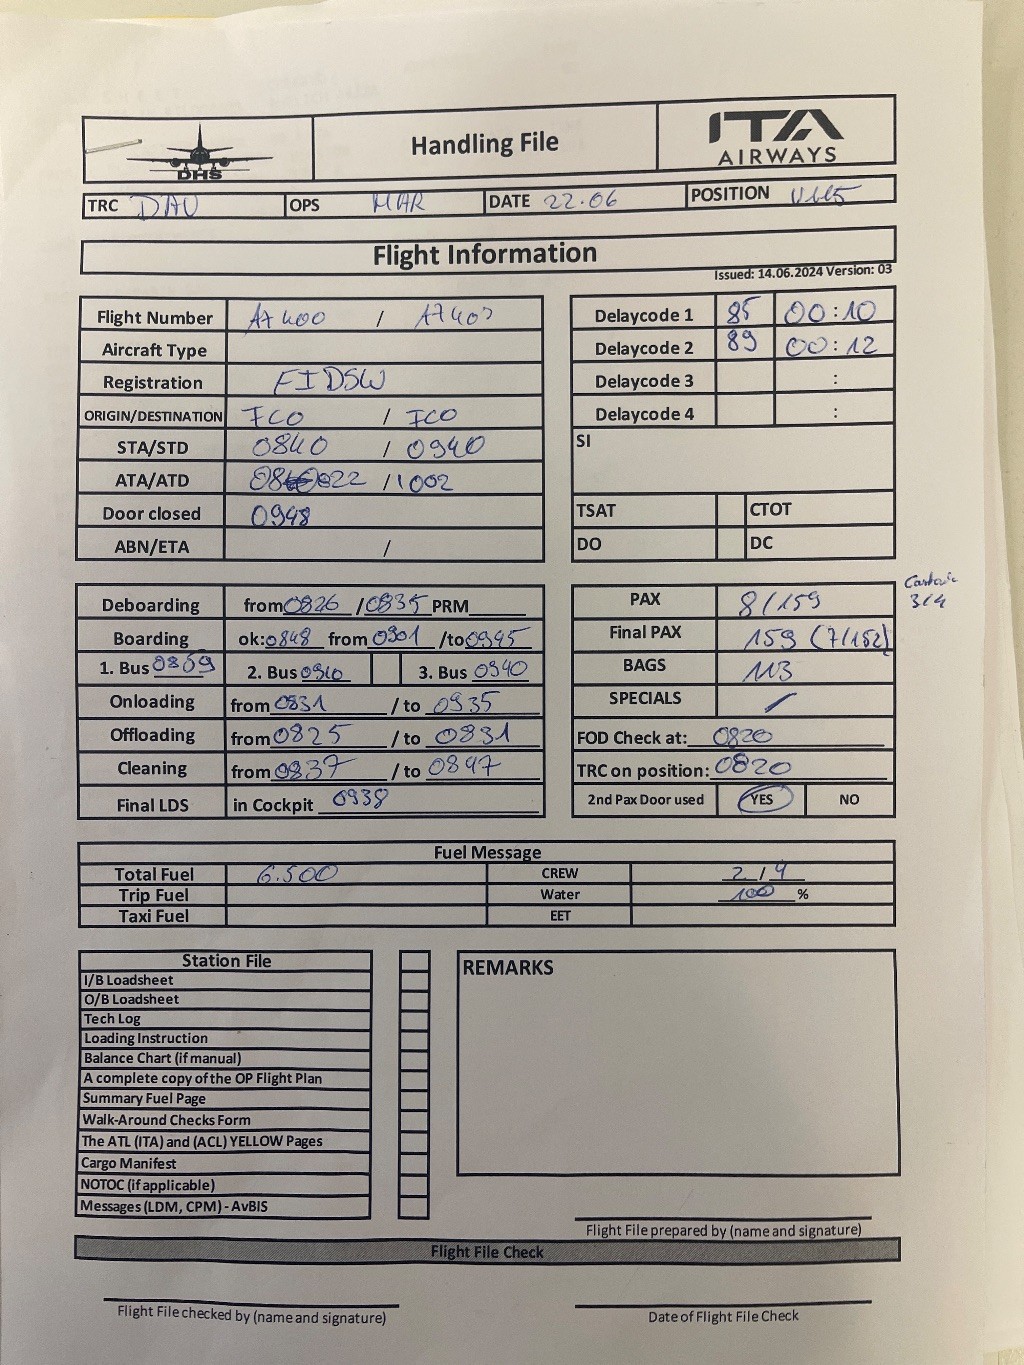 DHS
Handling File
ITA
AIRWAYS
TRC DAV OPS MAR DATE 22.06 POSITION V115
Flight Information
Issued: 14.06.2024 Version: 03
Flight Number AZ400 / AZ403
Aircraft Type
Registration EIDSW
ORIGIN/DESTINATION FCO / FCO
STA/STD 0840 / 0940
ATA/ATD 0822 / 1002
Door closed 0948
ABN/ETA /
Delaycode 1 85 00:10
Delaycode 2 89 00:12
Delaycode 3 :
Delaycode 4 :
SI
TSAT CTOT
DO DC
Deboarding from 0826 / 0835 PRM
Boarding ok: 0848 from 0901 /to 0945
1. Bus 0859 2. Bus 0910 3. Bus 0940
Onloading from 0831 / to 0935
Offloading from 0825 / to 0831
Cleaning from 0837 / to 0847
Final LDS in Cockpit 0938
PAX 8/159
3/4
Final PAX 159 (7/152)
BAGS 113
SPECIALS /
FOD Check at: 0820
TRC on position: 0820
2nd Pax Door used YES NO
Fuel Message
Total Fuel 6.500 CREW 2 / 4
Trip Fuel Water 100 %
Taxi Fuel EET
Station File
I/B Loadsheet
O/B Loadsheet
Tech Log
Loading Instruction
Balance Chart (if manual)
A complete copy of the OP Flight Plan
Summary Fuel Page
Walk-Around Checks Form
The ATL (ITA) and (ACL) YELLOW Pages
Cargo Manifest
NOTOC (if applicable)
Messages (LDM, CPM) - AvBIS
REMARKS
Flight File prepared by (name and signature)
Flight File Check
Flight File checked by (name and signature)
Date of Flight File Check